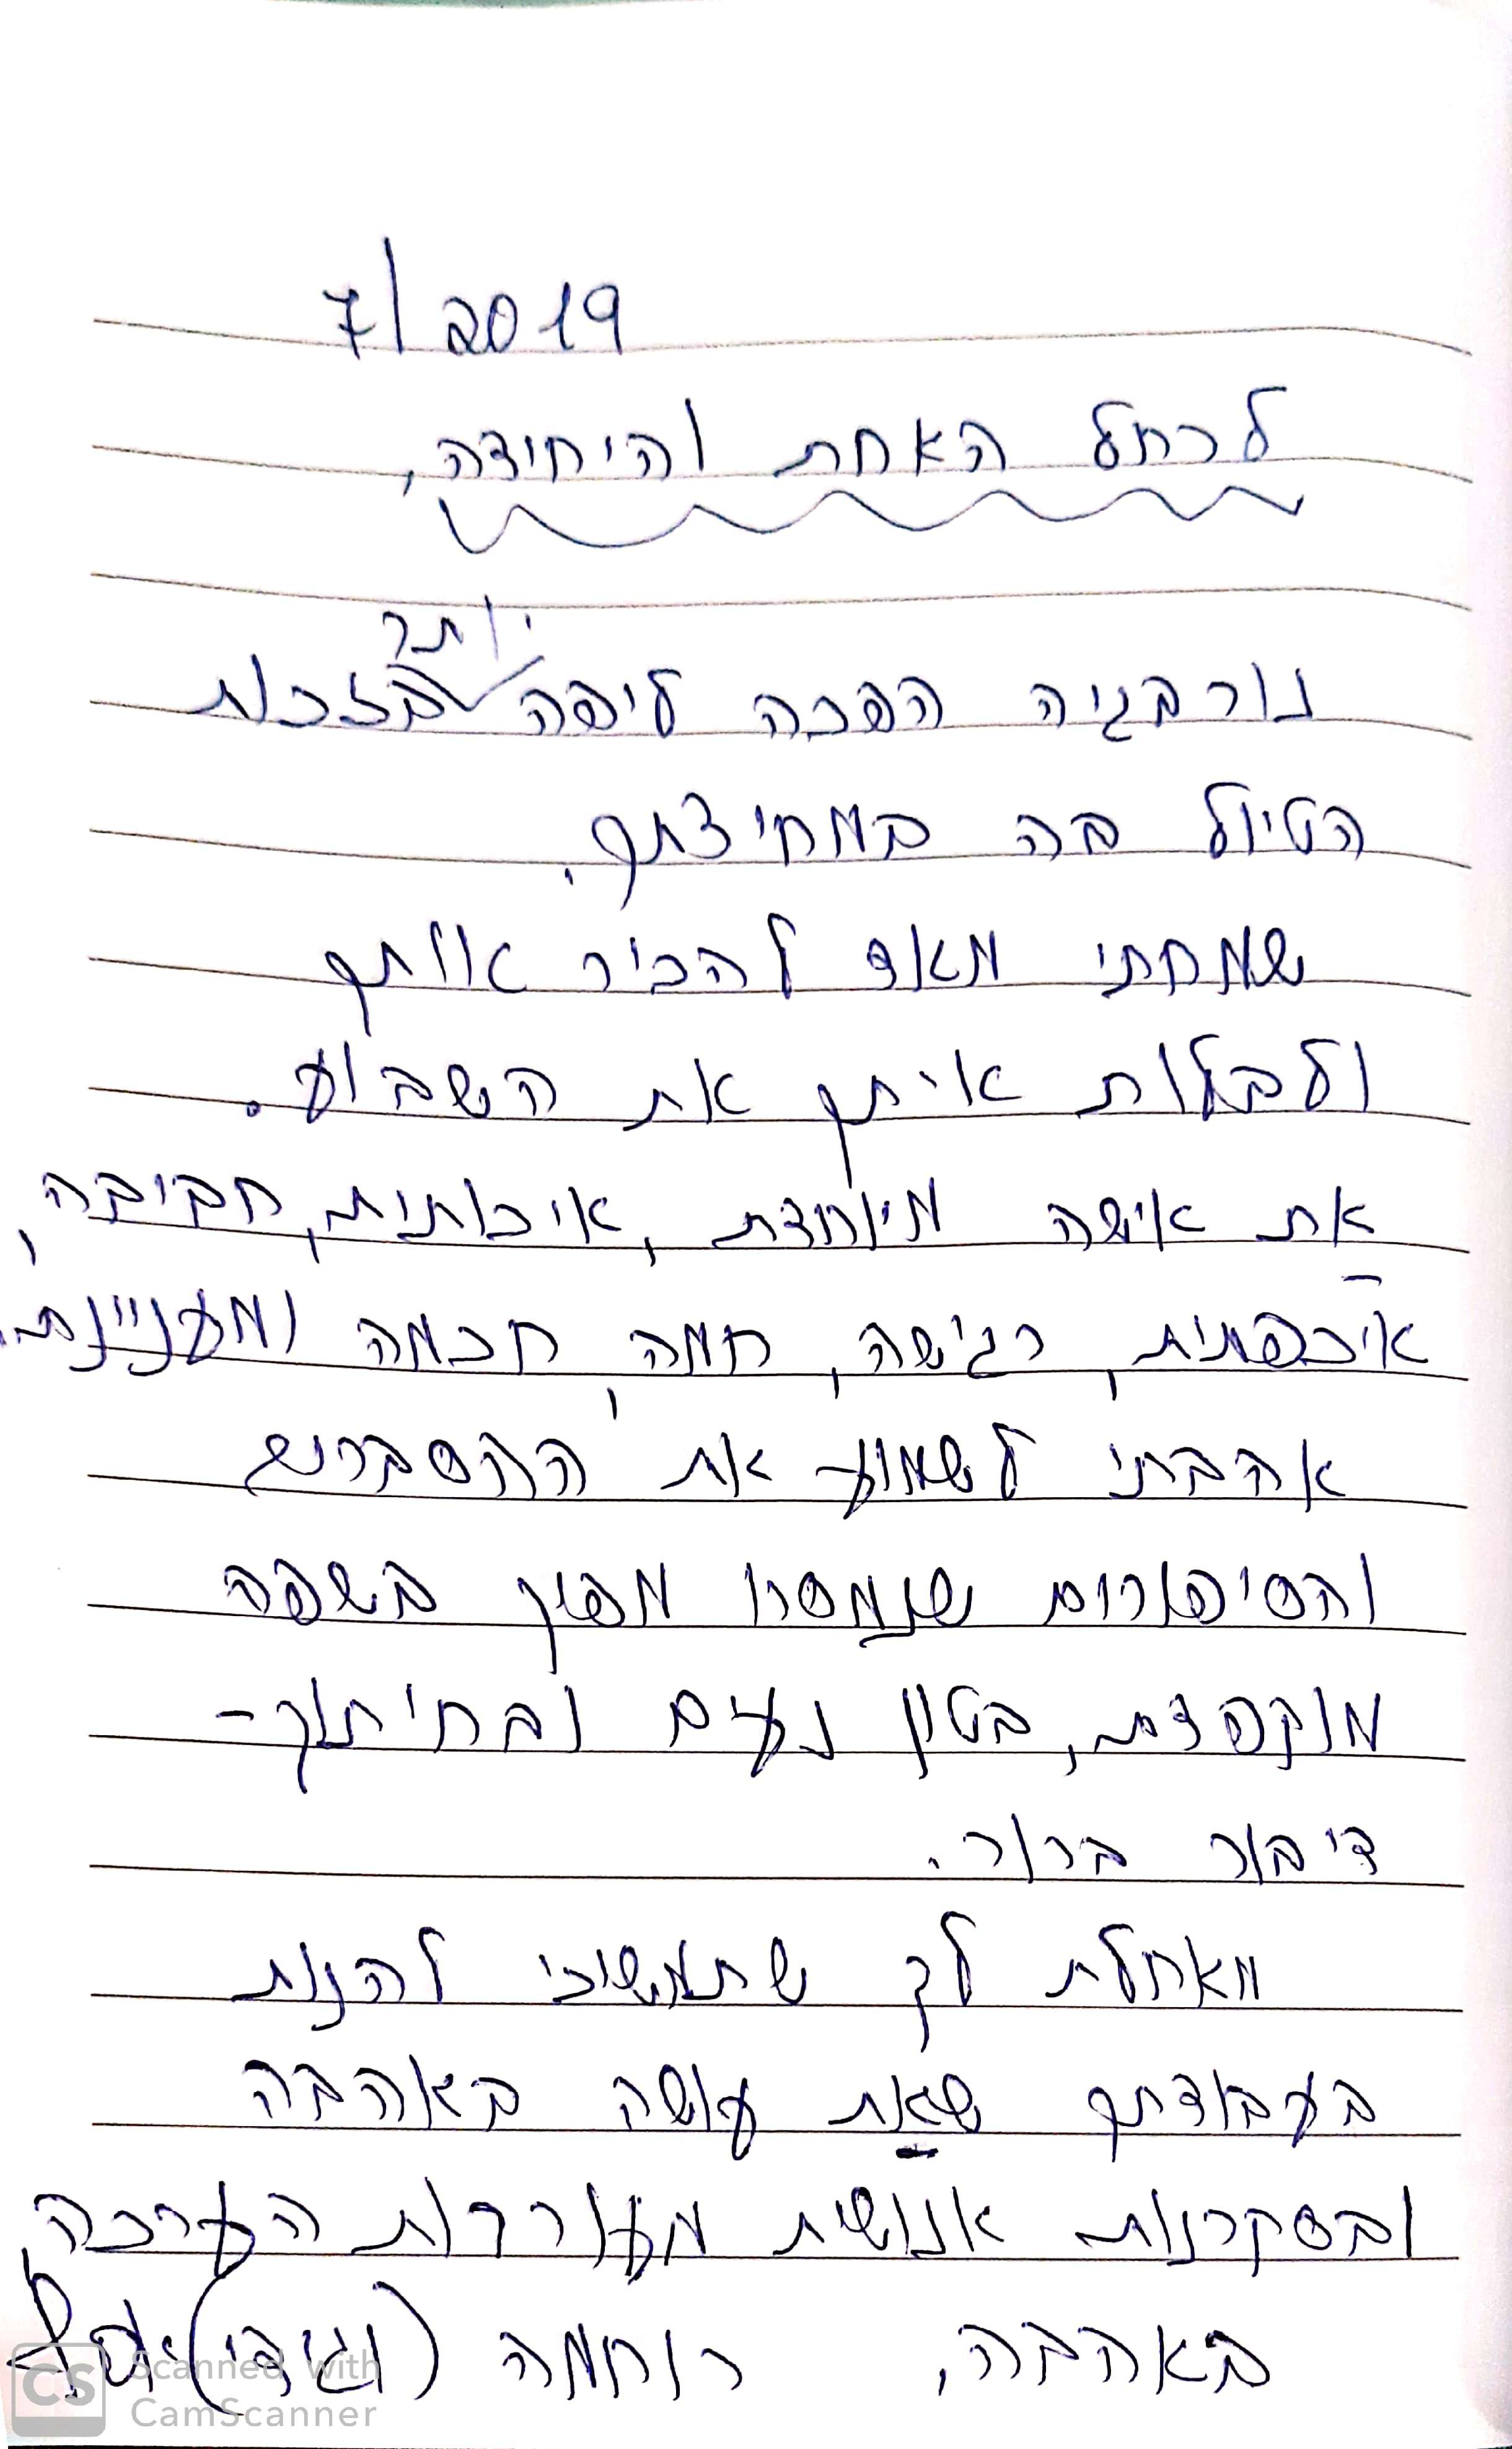 7/2019
לרחל האחת והיחידה,
נורבגיה הפכה ליפה יותר בזכות
הטיול בה במחיצתך.
שמחתי מאד להכיר אותך
ולבלות איתך את השבוע.
את אישה מיוחדת, איכותית, חביבה,
איכפתית, רגישה, חמה, חכמה ומעניינת.
אהבתי לשמוע את ההסברים
והסיפורים שנמסרו מפיך בשפה
מוקפדת, בטון נעים ובחיתוך-
דיבור ברור.
מאחלת לך שתמשיכי להנות
בעבודתך שאת עושה באהבה
ובסקרנות אנושית מעוררות הערכה,
באהבה, רוחמה (וגידי)
CS Scanned with
CamScanner